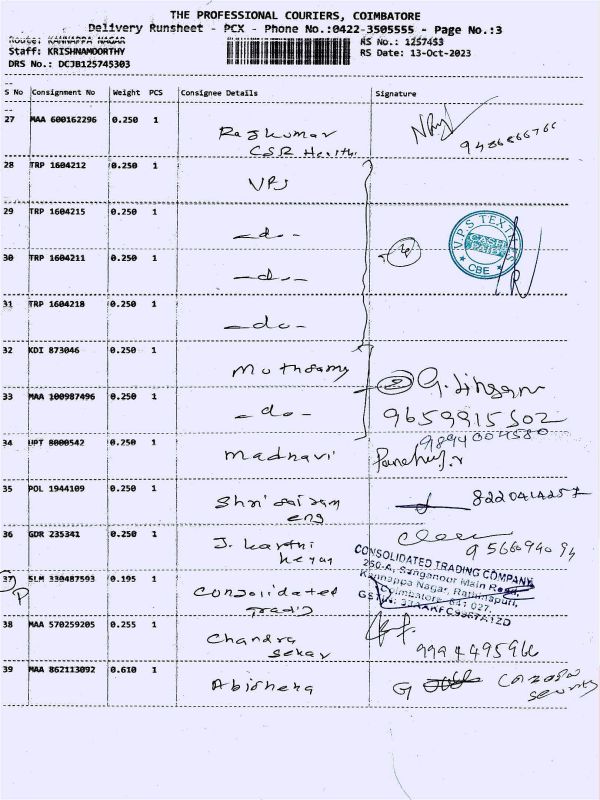 THE PROFESSIONAL COURIERS, COIMBATORE
Delivery Runsheet - PCX - Phone No.:0422-3505555 - Page No.:3
Route: KANNAPPA NAGAR
RS No.: 1257453
Staff: KRISHNAMOORTHY
RS Date: 13-Oct-2023
DRS No.: DCJB125745303
S No Consignment No Weight PCS Consignee Details Signature
27 MAA 600162296 0.250 1
Rajkumar
CSR Health
28 TRP 1604212 0.250 1
VPS
29 TRP 1604215 0.250 1
-do-
4
V.P.S TEXTILES
CBE
30 TRP 1604211 0.250 1
-do-
31 TRP 1604218 0.250 1
-do-
32 KDI 873046 0.250 1
Muthsamy
2
33 MAA 100987496 0.250 1
-do-
9659915302
9894004580
34 UPT 8000542 0.250 1
Madhavi
35 POL 1944109 0.250 1
Shri sairam
eng
8220414257
36 GDR 235341 0.250 1
J. Karthi
keyan
9566094094
37 SLM 330487593 0.195 1
P
Consolidated
trading
CONSOLIDATED TRADING COMPANY
250-A, Sanganoor Main Road,
Kannappa Nagar, Rathinapuri,
Coimbatore - 641 027.
38 MAA 570259205 0.255 1
Chandra
sekar
9994495966
39 MAA 862113092 0.610 1
Abisheka
G
security